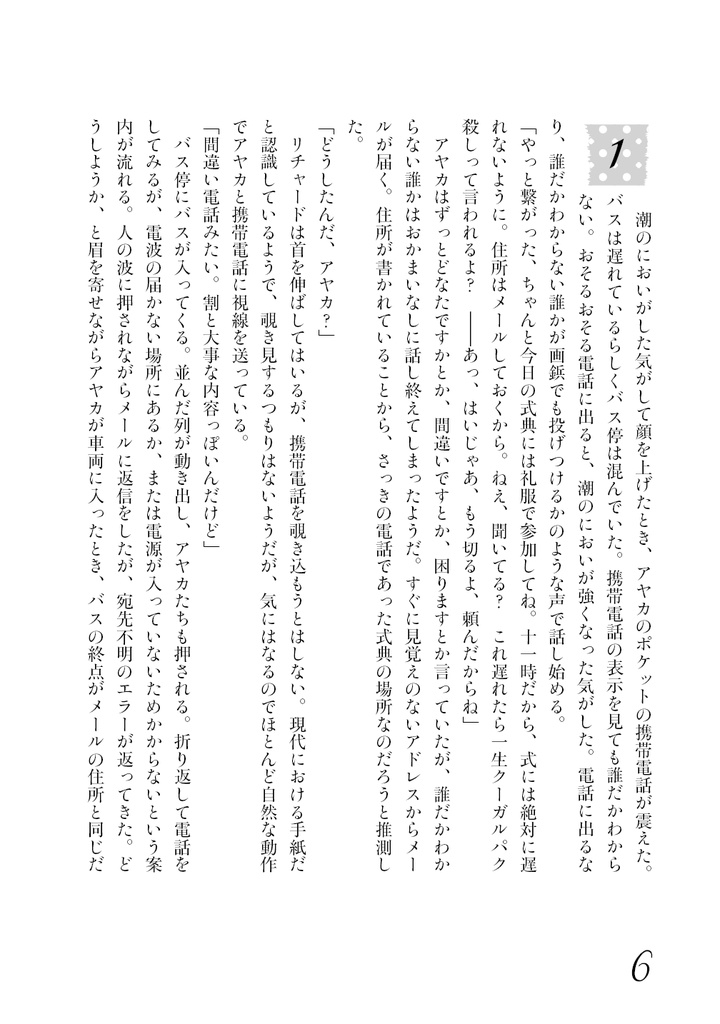 1
潮のにおいがした気がして顔を上げたとき、アヤカのポケットの携帯電話が震えた。
バスは遅れているらしくバス停は混んでいた。携帯電話の表示を見ても誰だかわから
ない。おそるおそる電話に出ると、潮のにおいが強くなった気がした。電話に出るな
り、誰だかわからない誰かが画鋲でも投げつけるかのような声で話し始める。
「やっと繋がった、ちゃんと今日の式典には礼服で参加してね。十一時だから、式には絶対に遅
れないように。住所はメールしておくから。ねえ、聞いてる？　これ遅れたら一生クーガルパク
殺しって言われるよ？　――あっ、はいじゃあ、もう切るよ、頼んだからね」
アヤカはずっとどなたですかとか、間違いですとか、困りますとか言っていたが、誰だかわか
らない誰かはおかまいなしに話し終えてしまったようだ。すぐに見覚えのないアドレスからメー
ルが届く。住所が書かれていることから、さっきの電話であった式典の場所なのだろうと推測し
た。
「どうしたんだ、アヤカ？」
リチャードは首を伸ばしてはいるが、携帯電話を覗き込もうとはしない。現代における手紙だ
と認識しているようで、覗き見するつもりはないようだが、気にはなるのでほとんど自然な動作
でアヤカと携帯電話に視線を送っている。
「間違い電話みたい。割と大事な内容っぽいんだけど」
バス停にバスが入ってくる。並んだ列が動き出し、アヤカたちも押される。折り返して電話を
してみるが、電波の届かない場所にあるか、または電源が入っていないためかからないという案
内が流れる。人の波に押されながらメールに返信をしたが、宛先不明のエラーが返ってきた。ど
うしようか、と眉を寄せながらアヤカが車両に入ったとき、バスの終点がメールの住所と同じだ
6